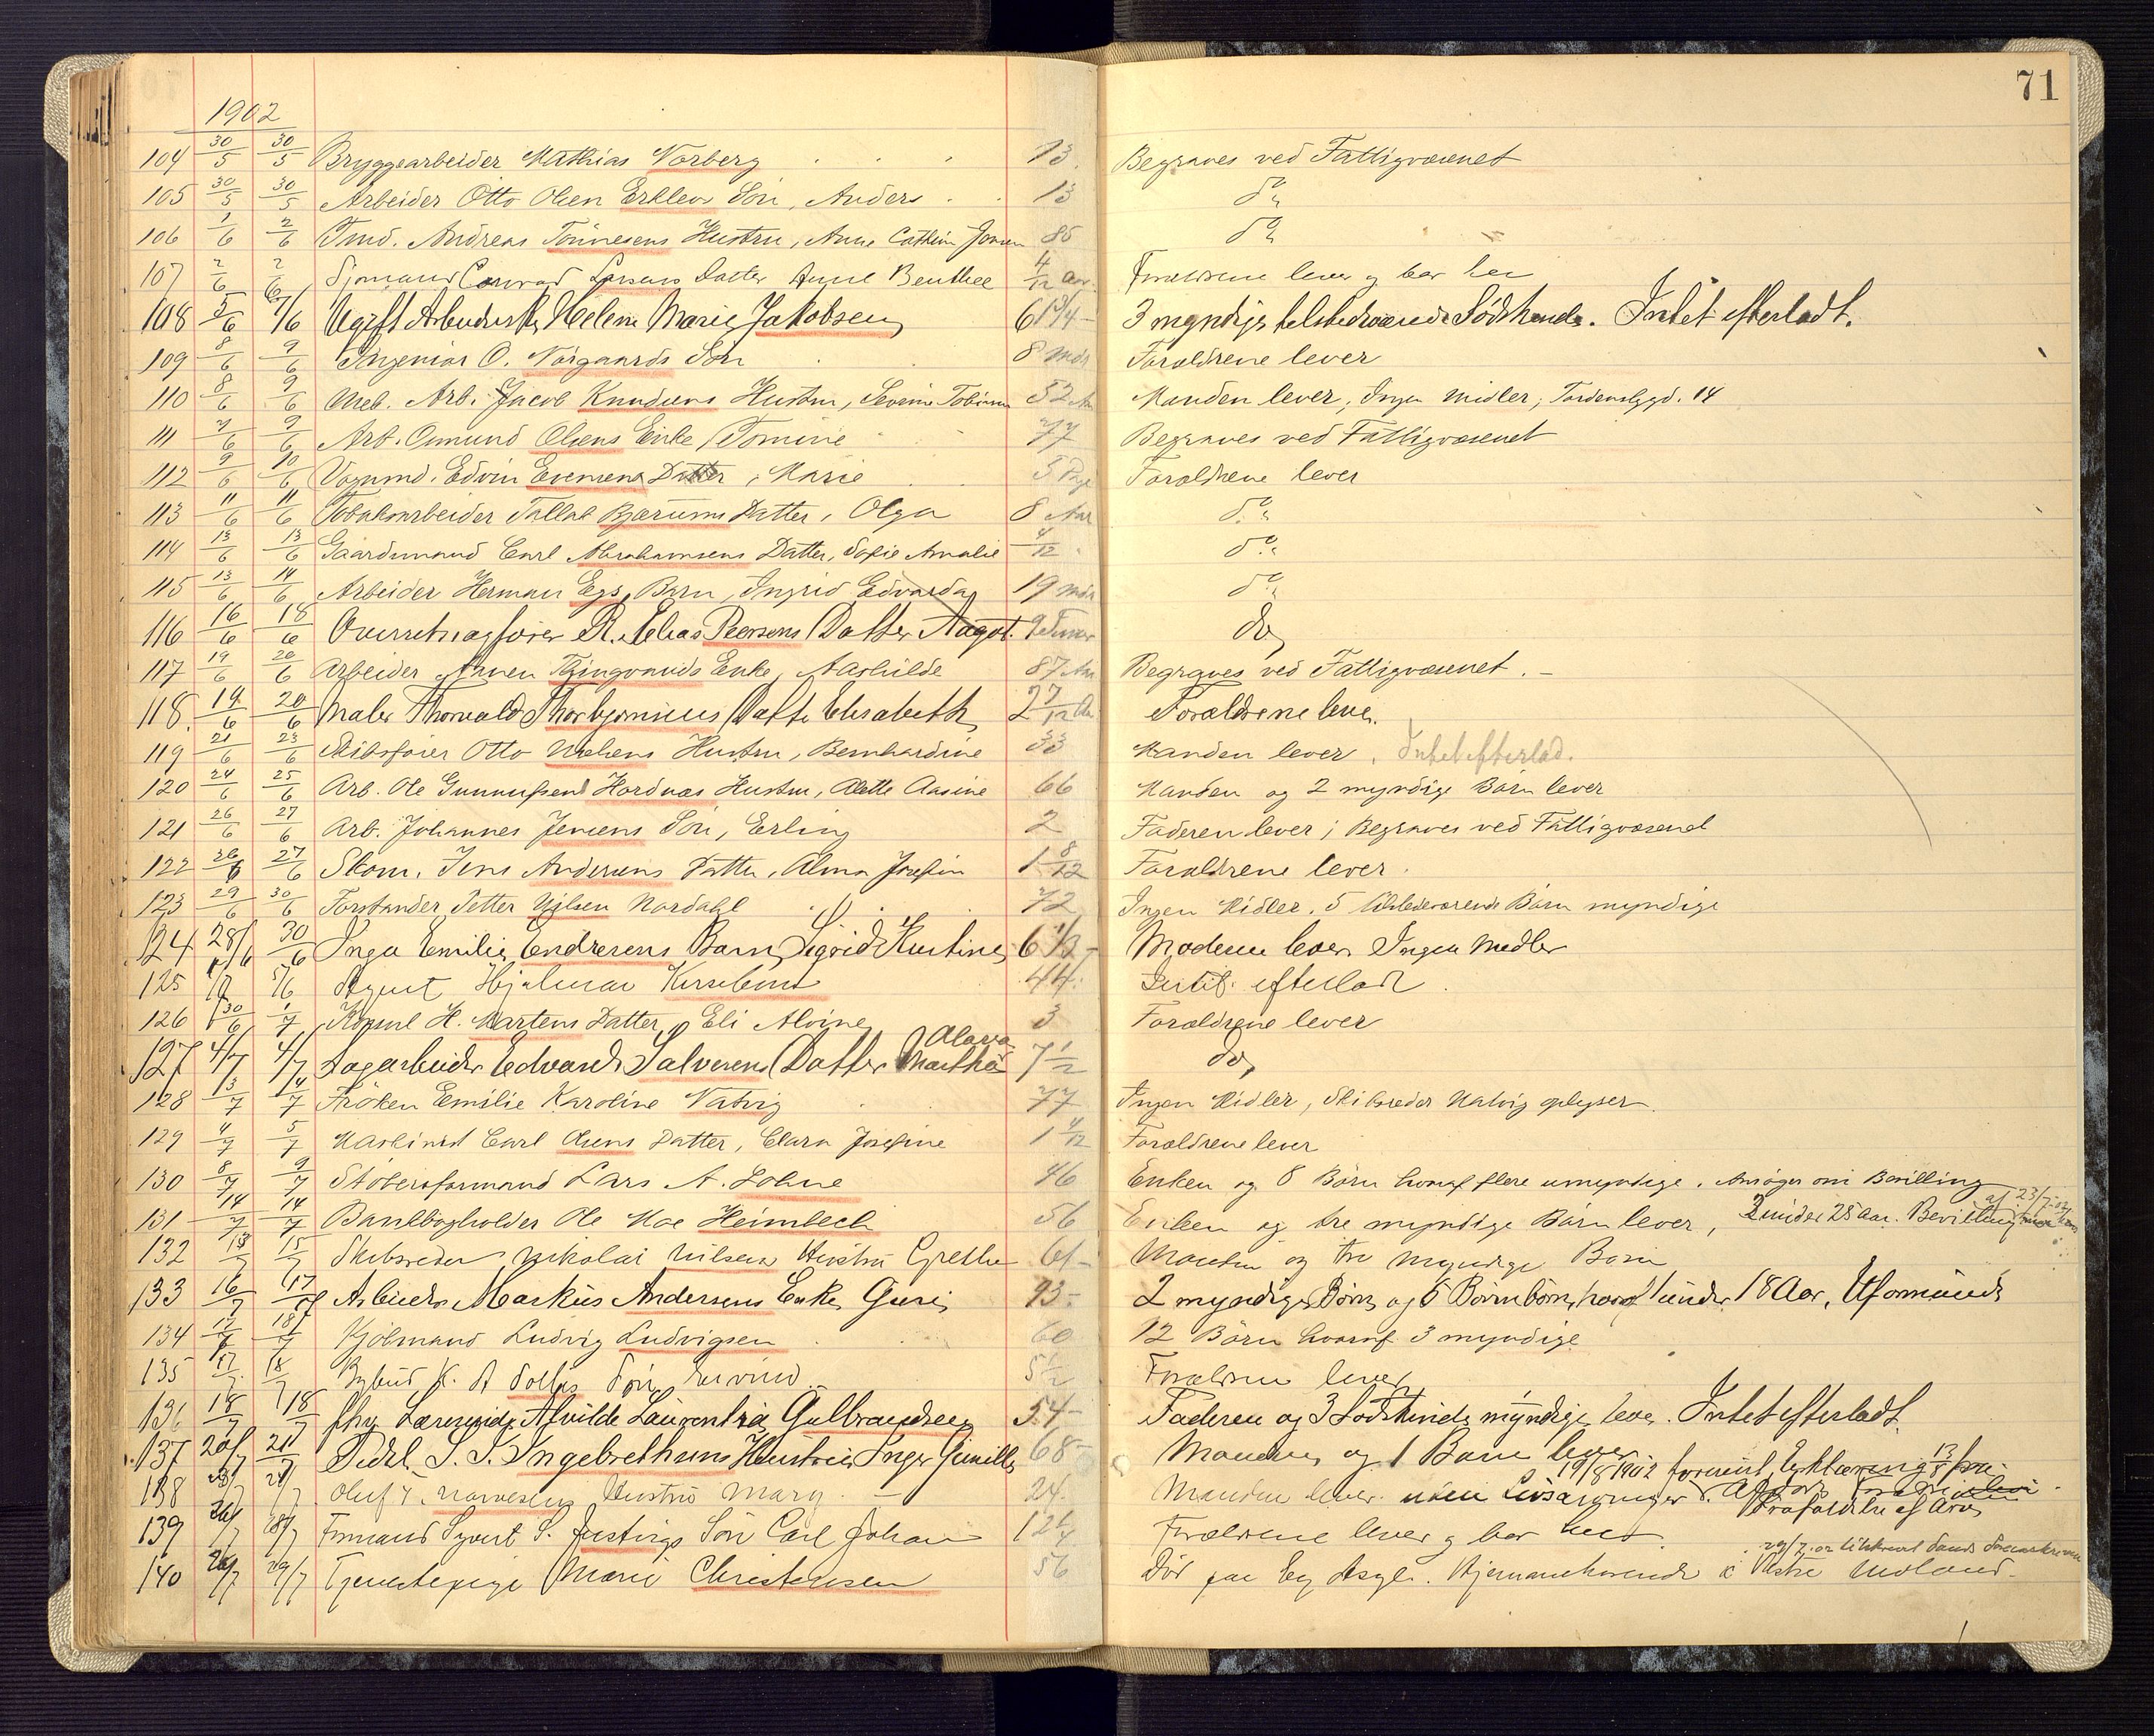 71
1902
104 30/5 30/5 Bryggearbeider Mathias Norberg 73. Begraves ved Fattigvæsenet
105 30/5 30/5 Arbeider Otto Olsen Erklev Søn, Anders 13 do
106 1/6 2/6 Tmd. Andreas Tønnesens Hustru, Anne Cathrin Jonsen 85 do
107 2/6 2/6 Sjømand Conrad Larsens Datter Anne Benthee 4/12 Aar. Forældrene lever og bor her
108 5/6 7/6 Ugift Arbeiderske Helene Marie Jakobsen 61 3/4 3 myndige tilstedeværende Sødskende. Intet efterladt.
109 8/6 9/6 Ingeniør O. Nørgaards Søn 8 Mdr Forældrene lever
110 8/6 9/6 Meb. Arb. Jacob Knudsens Hustru, Severine Tobine 52 Aar Manden lever, Ingen midler, Tordenskjgd. 14
111 7/6 9/6 Arb. Osmund Olsens Enke, Tomine 77 Begraves ved Fattigvæsenet
112 9/6 10/6 Vognmd. Edvin Evensens Datter, Marie 5 Dage Forældrene lever
113 11/6 11/6 Tobaksarbeider Tallak Bjørums Datter, Olga 8 Aar do
114 13/6 13/6 Gaardsmand Carl Abrahamsens Datter, Sofie Amalie 4/12 do
115 13/6 14/6 Arbeider Herman Egs, Barn, Ingrid Edvarda 19 mdr do
116 16/6 18/6 Overretssagfører R. Elias Peersens Datter Aagot. 9 Timer do
117 19/6 20/6 Arbeider Anen Tgingvands Enke, Aashilde 87 Aar Begraves ved Fattigvæsenet. -
118. 19/6 20/6 Maler Thorvald Thorbjørnsens Datter Elisabeth 2 7/12 Aar Forældrene lever.
119 21/6 23/6 Skibsfører Otto Nielsens Hustru, Bernhardine 33 Manden lever, Intet efterlad.
120 24/6 25/6 Arb. Ole Gunnufsen Hordnæs Hustru, Alette Aasine 66 Manden og 2 myndige Børn lever
121 26/6 27/6 Arb. Johannes Jensens Søn, Erling 2 Faderen lever; Begraves ved Fattigvæsenet
122 26/6 27/6 Skom. Jens Andersens Datter, Alma Josefine 1 8/12 Forældrene lever.
123 29/6 30/6 Forstander Petter Nilsen Nordahl 72 Ingen Midler. 5 tilstedeværende Børn myndige
124 28/6 30/6 Inga Emilie Endresens Barn Sigrid Kristine 6 1/2 Moderen lever Ingen Midler
125 1/7 5/6 August Hjalmar Kirsebom 44. Intet efterladt.
126 30/6 1/7 Konsul H. Martens Datter, Eli Alvine 3 Forældrene lever
127 4/7 4/7 Sagarbeider Edvard Salvesens Datter Martha Alava 7 1/2 do
128 13/7 14/7 Frøken Emilie Karoline Natvig 77 Ingen Midler, Skibsreder Natvig oplyser.
129 4/7 5/7 Maskinist Carl Olsens Datter, Clara Josefine 1 4/12 Forældrene lever
130 8/7 9/7 Støberiformand Lars A. Lohne 46 Enken og 8 Børn hvoraf flere umyndige. Ansøger om Bevilling
131 14/7 14/7 Bankbogholder Ole Moe Heimbeck 56 Enken og tre myndige Børn lever, 2 under 25 Aar. Bevilling af 23/7-02
132 13/7 15/7 Skibsreder Nikolai Nilsens Hustru Grethe 61 Manden og tre myndige Børn
133 16/7 17/7 Arbeider Markus Andersens Enke Guri 93 2 myndige Børn og 6 Børnbørn, hvoraf 1 under 18 Aar, Uformuende
134 17/7 18/7 Kjølmand Ludvig Ludvigsen 60 12 Børn hvoraf 3 myndige
135 17/7 18/7 Bybud K. A. Søn Eivind 5 1/2 Forældrene lever
136 18/7 18/7 Lærerinde Alvilde Laurentia Gulbrandsen 54 Faderen og 3 Sødskende myndige lever. Intet efterladt.
137 20/7 21/7 S. S. Ingebrethsens Hustru Inger Gunille 68 Manden og 1 Barn lever
138 23/7 24/7 Oluf T. Narvesens Hustru Mary 24. Manden lever. uden Livsarvinger. 19/8 1902 forevist Erklæring 13/8 fra Afdødes Forældre Frafaldelse af Arv
139 26/7 28/7 Formand Syvert S. Justvigs Søn Carl Johan 12 1/4 Forældrene lever og bor her
140 26/7 29/7 Tjenestepige Marie Christensen 56 Død paa Eg Asyl. Hjemmehørende i Østre Moland. 29/7.02 tilskrevet Sands Sorenskriveri